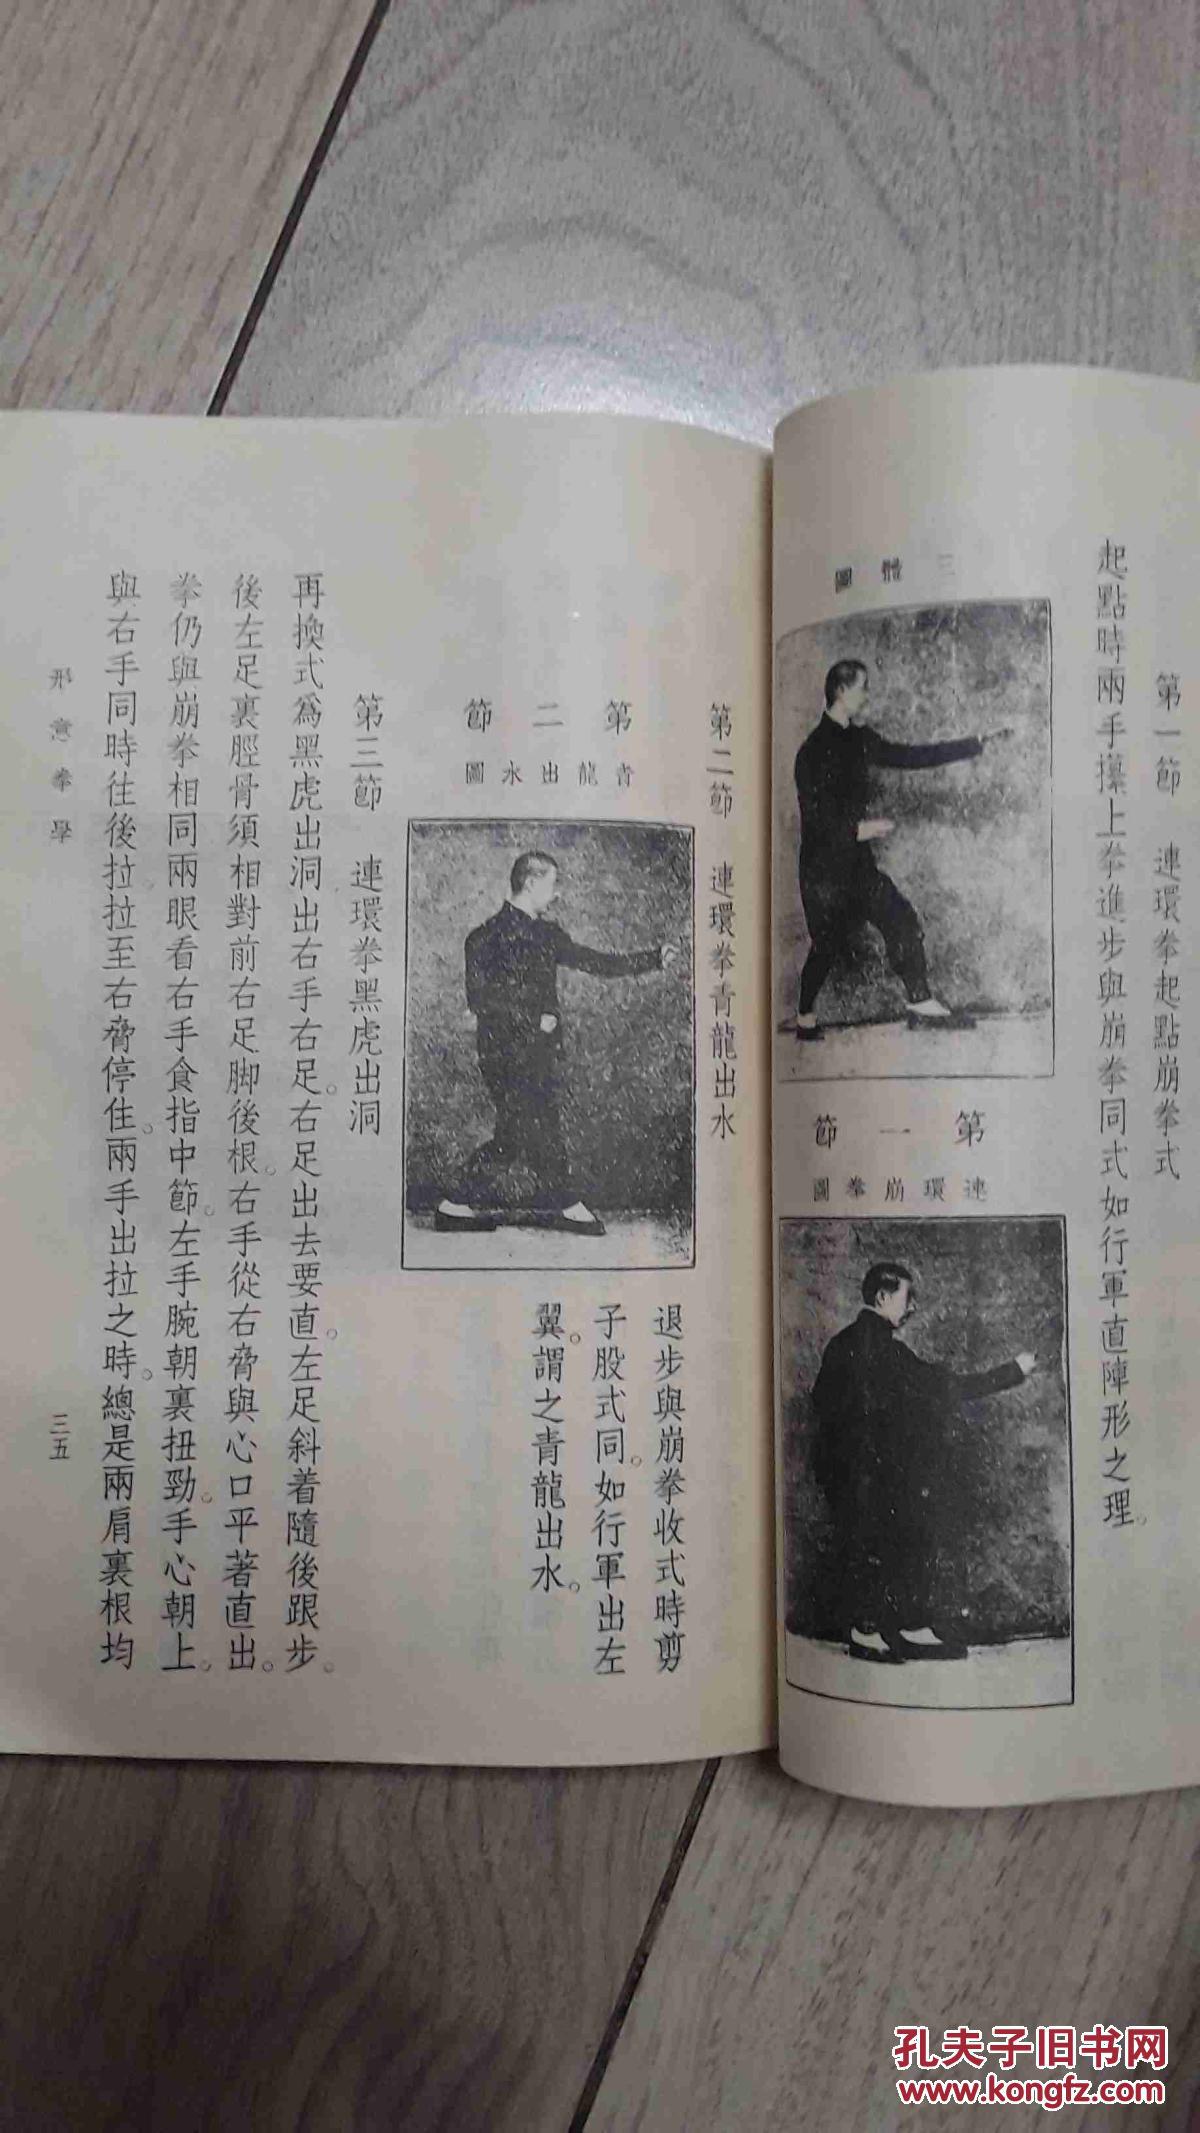 第一節　連環拳起點崩拳式
起點時兩手攥上拳進步與崩拳同式如行軍直陣形之理。
三體圖
第一節
連環崩拳圖
第二節　連環拳青龍出水
第二節
青龍出水圖
退步與崩拳收式時剪
子股式同。如行軍出左
翼。謂之青龍出水。
第三節　連環拳黑虎出洞
再換式爲黑虎出洞出右手右足。右足出去要直。左足斜着隨後跟步。
後左足裏脛骨須相對前右足脚後根。右手從右脅與心口平著直出。
拳仍與崩拳相同兩眼看右手食指中節。左手腕朝裏扭勁。手心朝上。
與右手同時往後拉拉至右脅停住。兩手出拉之時。總是兩肩裏根均
形意拳學
三五
孔夫子旧书网
www.kongfz.com